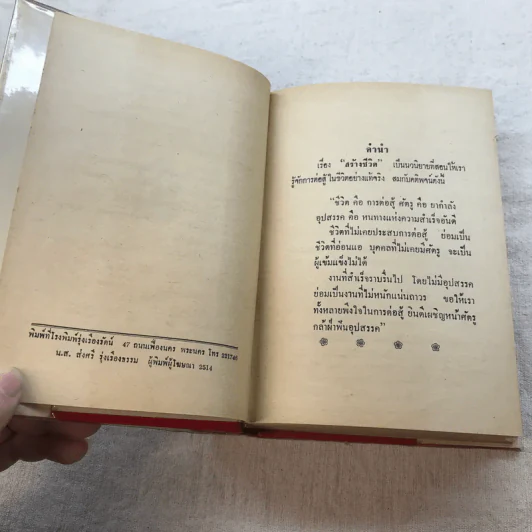 พิมพ์ที่โรงพิมพ์รุ่งเรืองรัตน์ 47 ถนนเฟื่องนคร พระนคร โทร
น.ส. ส่งศรี รุ่งเรืองธรรม ผู้พิมพ์ผู้โฆษณา 2514
คำนำ
เรื่อง "สร้างชีวิต" เป็นนวนิยายที่สอนให้เรา
รู้จักการต่อสู้ในชีวิตอย่างแท้จริง สมกับคติพจน์ดังนี้
"ชีวิต คือ การต่อสู้ ศัตรู คือ ยากำลัง
อุปสรรค คือ หนทางแห่งความสำเร็จอันดี
ชีวิตที่ไม่เคยประสบการต่อสู้ ย่อมเป็น
ชีวิตที่อ่อนแอ บุคคลที่ไม่เคยมีศัตรู จะเป็น
ผู้เข้มแข็งไม่ได้
งานที่สำเร็จราบรื่นไป โดยไม่มีอุปสรรค
ย่อมเป็นงานที่ไม่หนักแน่นถาวร ขอให้เรา
ทั้งหลายพึงใจในการต่อสู้ ยินดีเผชิญหน้าศัตรู
กล้าฝ่าฟันอุปสรรค"